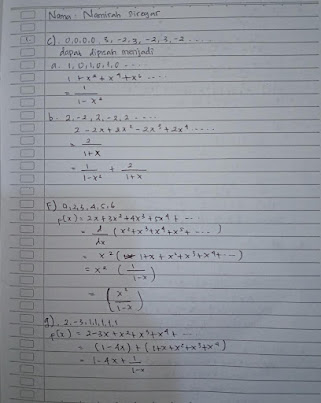 Nama : Namirah Siregar
1. c). 0,0,0,0, 3, -2, 3, -2, 3, -2 ....
dapat dipisah menjadi
a. 1, 0, 1, 0, 1, 0 ....
1 + x² + x⁴ + x⁶ ....
= 1/(1 - x²)
b. 2, -2, 2, -2, 2 ....
2 - 2x + 2x² - 2x³ + 2x⁴ ....
= 2/(1 + x)
= 1/(1 - x²) + 2/(1 + x)
F) 0,2,3,4,5,6
P(x) = 2x + 3x² + 4x³ + 5x⁴ + ...
= d/dx (x² + x³ + x⁴ + x⁵ + ... )
= x² ( 1 + x + x² + x³ + x⁴ + ... )
= x² (1/(1-x))
= (x²/(1-x))
9). 2, -3, 1, 1, 1, 1, 1
P(x) = 2 - 3x + x² + x³ + x⁴ + ...
= (1 - 4x) + (1 + x + x² + x³ + x⁴)
= 1 - 4x + 1/(1-x)